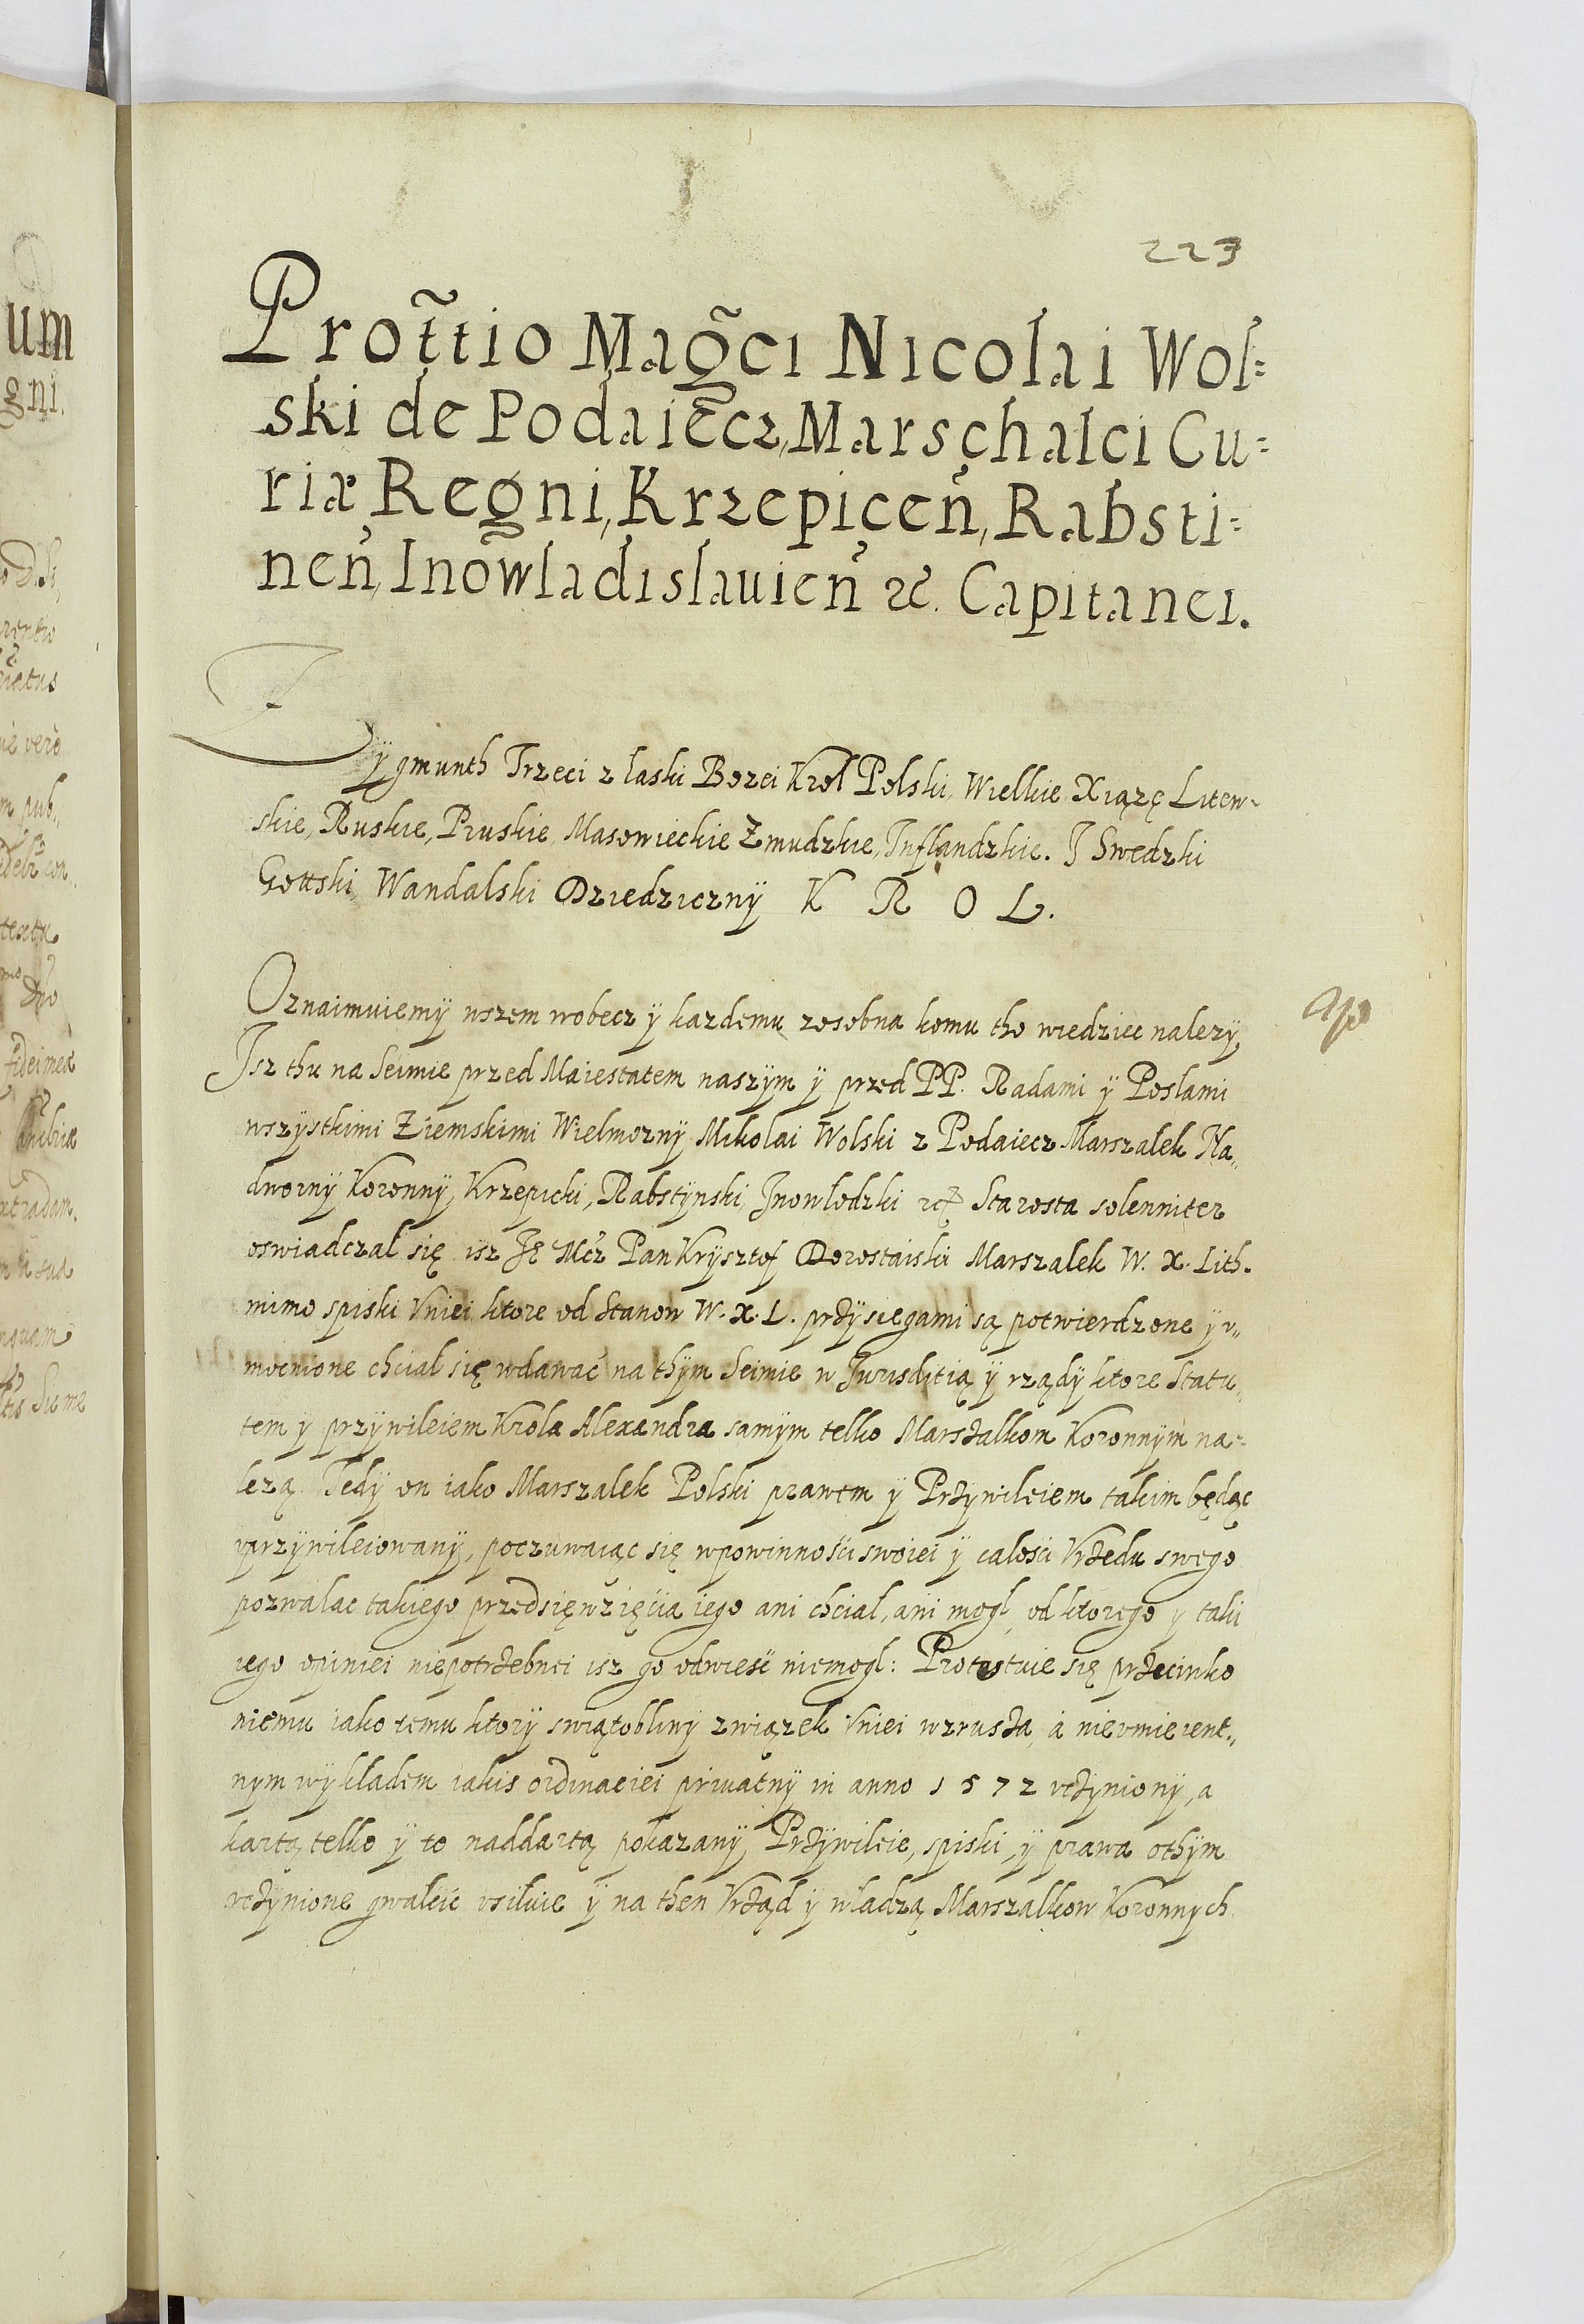 223
Prot̃tio Mag̃ci Nicolai Wol=
ski de Podaiecz, Marschalci Cu=
riæ Regni, Krzepiceñ, Rabsti=
neñ, Inowladislauieñ ꝛc. Capitanei.
Zÿgmunth Trzeci z laski Bozei Krol Polski, Wielkie Xiązę Litew-
skie, Ruskie, Pruskie, Masowieckie Zmudzkie, Inflandzkie. I Swedzki
Gottski, Wandalski Dziedzicznÿ K R O L.
Oznaimuiemÿ wszem wobecz ÿ kazdemu zosobna komu tho wiedziec nalezÿ,
Isz thu na Seimie przed Maiestatem naszÿm ÿ przed PP. Radami ÿ Poslami
wszÿstkimi Ziemskimi Wielmoznÿ Mikolai Wolski z Podaiecz Marszalek Na„
dwornÿ Koronnÿ, Krzepicki, Rabstÿnski, Inowlodzki ꝛc Starosta solenniter
oswiadczal się isz Je Mcz Pan Krÿsztof Dorostaiski Marszalek W. X. Lith.
mimo spiski Vniei ktore od Stanow W. X. L. przÿsiegami są potwierdzone ÿ v„
mocnione chcial się wdawać na thÿm Seimie w Jurisditią ÿ rządÿ ktore Statu„
tem ÿ przÿwileiem Krola Alexandra samÿm telko Marszalkom Koronnÿm na=
lezą. Tedÿ on iako Marszalek Polski prawem ÿ Przÿwileiem takim będąc
vprzÿwileiowanÿ, poczuwaiąc się wpowinnosci swoiei ÿ calosci Vrzedu swego
pozwalac takiego przedsięwzięcia iego ani chcial, ani mogl, od ktorego ÿ taki
iego opiniei niepotrzebnei isz go odwiesć niemogl: Protestuie się przeciwko
niemu iako temu ktorÿ swiątobliwÿ związek Vniei wzrusza, a nievmieient„
nym wÿkladem iakis ordinaciei priuatnÿ in anno 1572 vczÿnionÿ, a
kartą telko ÿ to naddartą pokazanÿ, Przÿwileie, spiski, ÿ prawa othÿm
vczÿnione gwalcic vsiluie ÿ na then Vrząd ÿ wladzą Marszalkow Koronnych